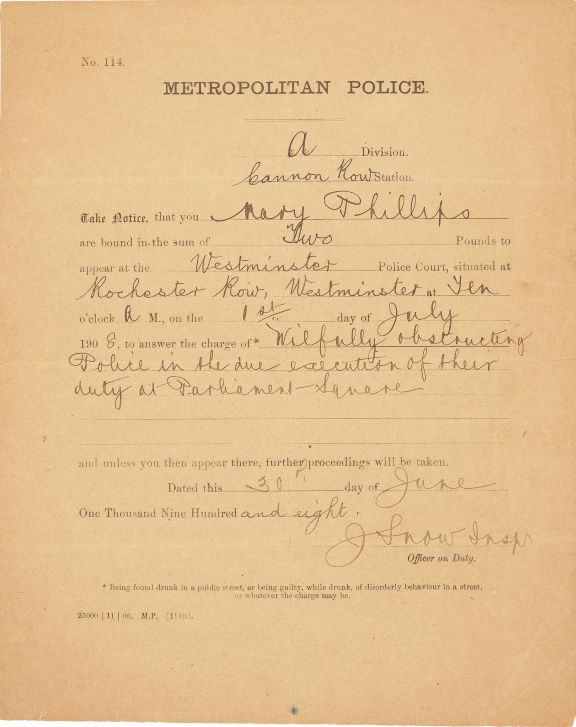 No. 114.
METROPOLITAN POLICE.
A Division.
Cannon Row Station.
Take Notice, that you Mary Phillips
are bound in the sum of Two Pounds to
appear at the Westminster Police Court, situated at
Rochester Row, Westminster at Ten
o'clock A M., on the 1st day of July
190 8, to answer the charge of* Wilfully obstructing
Police in the due execution of their
duty at Parliament-Square
and unless you then appear there, further proceedings will be taken.
Dated this 30th day of June
One Thousand Nine Hundred and eight.
J Snow Inspr
Officer on Duty.
* Being found drunk in a public street, or being guilty, while drunk, of disorderly behaviour in a street,
or whatever the charge may be.
25000 | 11 | 06. M.P. [114B].